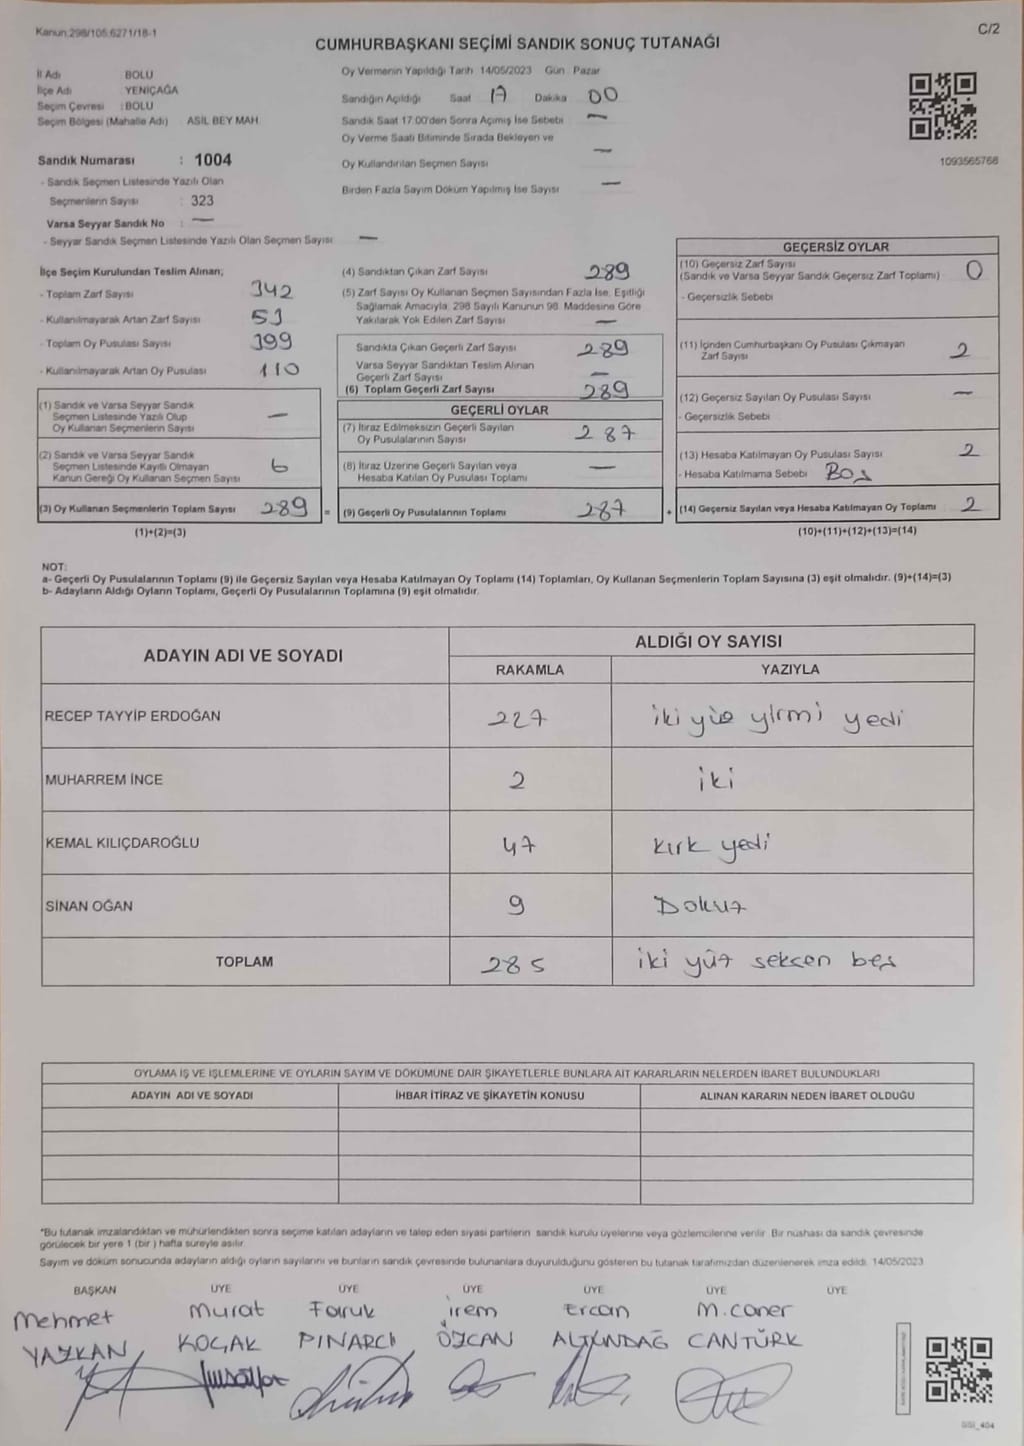 Kanun:298/105,6271/18-1
C/2
CUMHURBAŞKANI SEÇİMİ SANDIK SONUÇ TUTANAĞI
İl Adı : BOLU
İlçe Adı : YENİÇAĞA
Seçim Çevresi : BOLU
Seçim Bölgesi (Mahalle Adı) : ASIL BEY MAH.
Sandık Numarası : 1004
- Sandık Seçmen Listesinde Yazılı Olan
Seçmenlerin Sayısı : 323
Varsa Seyyar Sandık No : —
- Seyyar Sandık Seçmen Listesinde Yazılı Olan Seçmen Sayısı —
Oy Vermenin Yapıldığı Tarih 14/05/2023 Gün : Pazar
Sandığın Açıldığı Saat 17 Dakika 00
Sandık Saat 17:00'den Sonra Açılmış İse Sebebi —
Oy Verme Saati Bitiminde Sırada Bekleyen ve
Oy Kullandırılan Seçmen Sayısı —
Birden Fazla Sayım Döküm Yapılmış İse Sayısı —
1093565768
İlçe Seçim Kurulundan Teslim Alınan;
- Toplam Zarf Sayısı 342
- Kullanılmayarak Artan Zarf Sayısı 53
- Toplam Oy Pusulası Sayısı 399
- Kullanılmayarak Artan Oy Pusulası 110
(1) Sandık ve Varsa Seyyar Sandık
Seçmen Listesinde Yazılı Olup
Oy Kullanan Seçmenlerin Sayısı —
(2) Sandık ve Varsa Seyyar Sandık
Seçmen Listesinde Kayıtlı Olmayan
Kanun Gereği Oy Kullanan Seçmen Sayısı 6
(3) Oy Kullanan Seçmenlerin Toplam Sayısı 289 =
(1)+(2)=(3)
(4) Sandıktan Çıkan Zarf Sayısı 289
(5) Zarf Sayısı Oy Kullanan Seçmen Sayısından Fazla İse, Eşitliği
Sağlamak Amacıyla, 298 Sayılı Kanunun 98. Maddesine Göre
Yakılarak Yok Edilen Zarf Sayısı —
Sandıkta Çıkan Geçerli Zarf Sayısı 289
Varsa Seyyar Sandıktan Teslim Alınan
Geçerli Zarf Sayısı —
(6) Toplam Geçerli Zarf Sayısı 289
GEÇERLİ OYLAR
(7) İtiraz Edilmeksizin Geçerli Sayılan
Oy Pusulalarının Sayısı 287
(8) İtiraz Üzerine Geçerli Sayılan veya
Hesaba Katılan Oy Pusulası Toplamı —
(9) Geçerli Oy Pusulalarının Toplamı 287 +
GEÇERSİZ OYLAR
(10) Geçersiz Zarf Sayısı
(Sandık ve Varsa Seyyar Sandık Geçersiz Zarf Toplamı) 0
- Geçersizlik Sebebi
(11) İçinden Cumhurbaşkanı Oy Pusulası Çıkmayan
Zarf Sayısı 2
(12) Geçersiz Sayılan Oy Pusulası Sayısı —
- Geçersizlik Sebebi
(13) Hesaba Katılmayan Oy Pusulası Sayısı 2
- Hesaba Katılmama Sebebi Boş
(14) Geçersiz Sayılan veya Hesaba Katılmayan Oy Toplamı 2
(10)+(11)+(12)+(13)=(14)
NOT:
a- Geçerli Oy Pusulalarının Toplamı (9) ile Geçersiz Sayılan veya Hesaba Katılmayan Oy Toplamı (14) Toplamları, Oy Kullanan Seçmenlerin Toplam Sayısına (3) eşit olmalıdır. (9)+(14)=(3)
b- Adayların Aldığı Oyların Toplamı, Geçerli Oy Pusulalarının Toplamına (9) eşit olmalıdır.
ADAYIN ADI VE SOYADI ALDIĞI OY SAYISI
RAKAMLA YAZIYLA
RECEP TAYYİP ERDOĞAN 227 iki yüz yirmi yedi
MUHARREM İNCE 2 iki
KEMAL KILIÇDAROĞLU 47 kırk yedi
SİNAN OĞAN 9 Dokuz
TOPLAM 285 iki yüz seksen beş
OYLAMA İŞ VE İŞLEMLERİNE VE OYLARIN SAYIM VE DÖKÜMÜNE DAİR ŞİKAYETLERLE BUNLARA AİT KARARLARIN NELERDEN İBARET BULUNDUKLARI
ADAYIN ADI VE SOYADI İHBAR İTİRAZ VE ŞİKAYETİN KONUSU ALINAN KARARIN NEDEN İBARET OLDUĞU
*Bu tutanak imzalandıktan ve mühürlendikten sonra seçime katılan adayların ve talep eden siyasi partilerin sandık kurulu üyelerine veya gözlemcilerine verilir. Bir nüshası da sandık çevresinde
görülecek bir yere 1 (bir ) hafta süreyle asılır.
Sayım ve döküm sonucunda adayların aldığı oyların sayılarını ve bunların sandık çevresinde bulunanlara duyurulduğunu gösteren bu tutanak tarafımızdan düzenlenerek imza edildi. 14/05/2023
BAŞKAN ÜYE ÜYE ÜYE ÜYE ÜYE ÜYE
Mehmet Murat Faruk İrem Ercan M.Caner
YAZKAN KOÇAK PINARCI ÖZCAN ALTUNDAĞ CANTÜRK